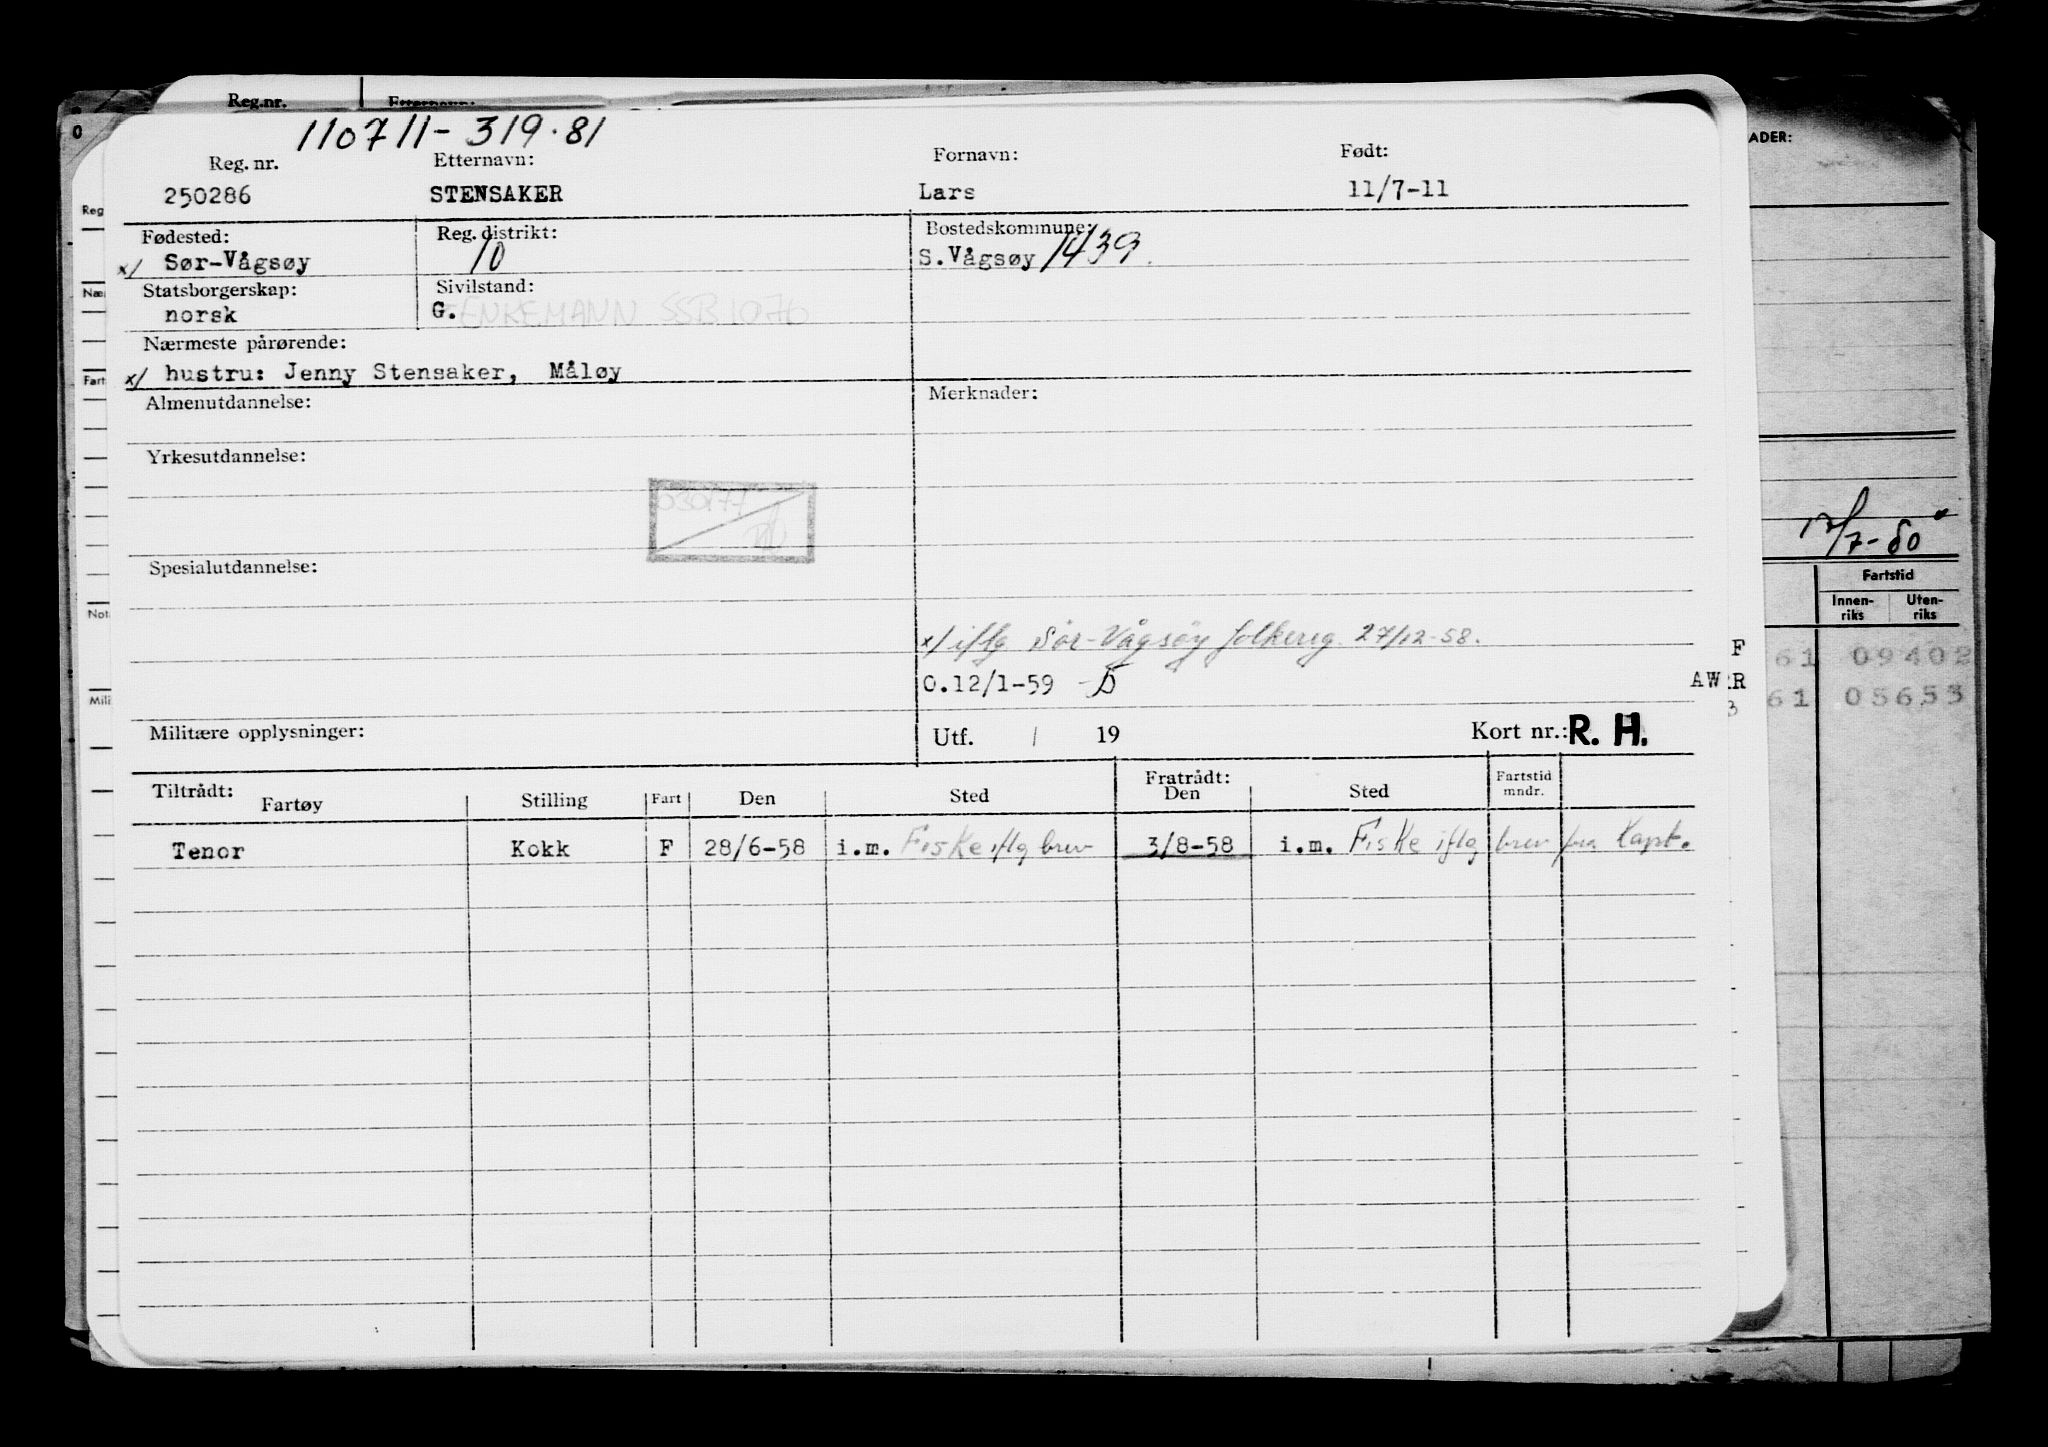 Reg.nr.
110711-319.81
Reg. nr. Etternavn: Fornavn: Født:
250286 STENSAKER Lars 11/7-11
Fødested: Reg. distrikt: Bostedskommune:
x/ Sør-Vågsøy 10 S.Vågsøy 1439
Statsborgerskap: Sivilstand:
norsk G. ENKEMANN SSB 1076
Nærmeste pårørende:
x/ hustru: Jenny Stensaker, Måløy
Almenutdannelse: Merknader:
Yrkesutdannelse:
Spesialutdannelse:
x/ iflg Sør-Vågsøy folkereg. 27/12-58.
O.12/1-59
Militære opplysninger: Utf. / 19 Kort nr.: R. H.
Tiltrådt: Fratrådt:
Fartøy Stilling Fart Den Sted Den Sted Fartstid mndr.
Tenor Kokk F 28/6-58 i.m. Fiske iflg brev 3/8-58 i.m. Fiske iflg brev fra Kapt.
ADER:
12/7-60
Fartstid
Innen-riks Uten-riks
F 61 09402
AW RR 61 05653
3
0
Reg
Næ
Fart
Not
Mili